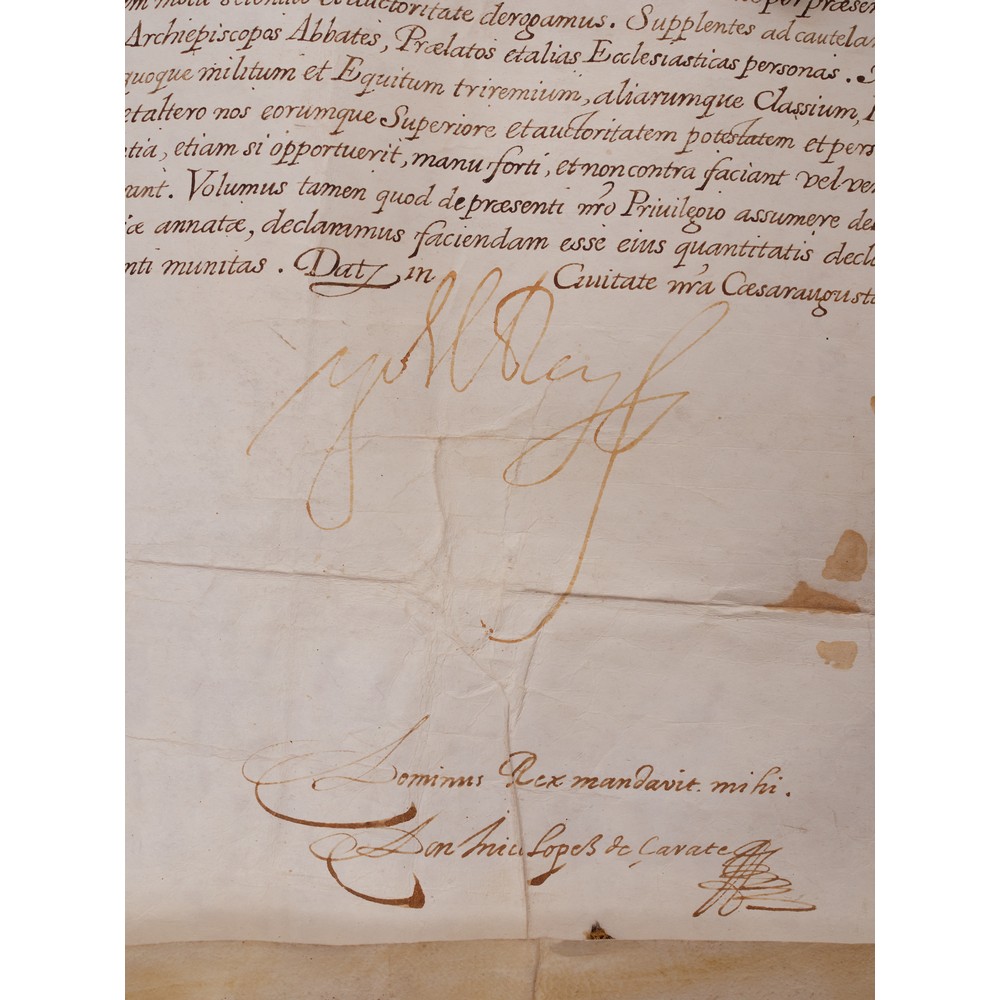 motu scientia et auctoritate derogamus. Supplentes ad cautelam
Archiepiscopos Abbates, Prælatos et alias Ecclesiasticas personas.
quoque militum et Equitum triremium, aliarumque Classium,
et altero nos eorumque Superiore et auctoritatem potestatem et pers
tia, etiam si opportuerit, manu forti, et non contra faciant vel ve
unt. Volumus tamen quod de præsenti nr̃o Privilegio assumere de
iæ annatæ, declaramus faciendam esse eius quantitatis decla
nti munitas. Datz in Ciuitate nr̃a Cæsaraugustæ
yo el Rey
Dominus Rex mandavit mihi.
Don Inic Lopez de Çarate